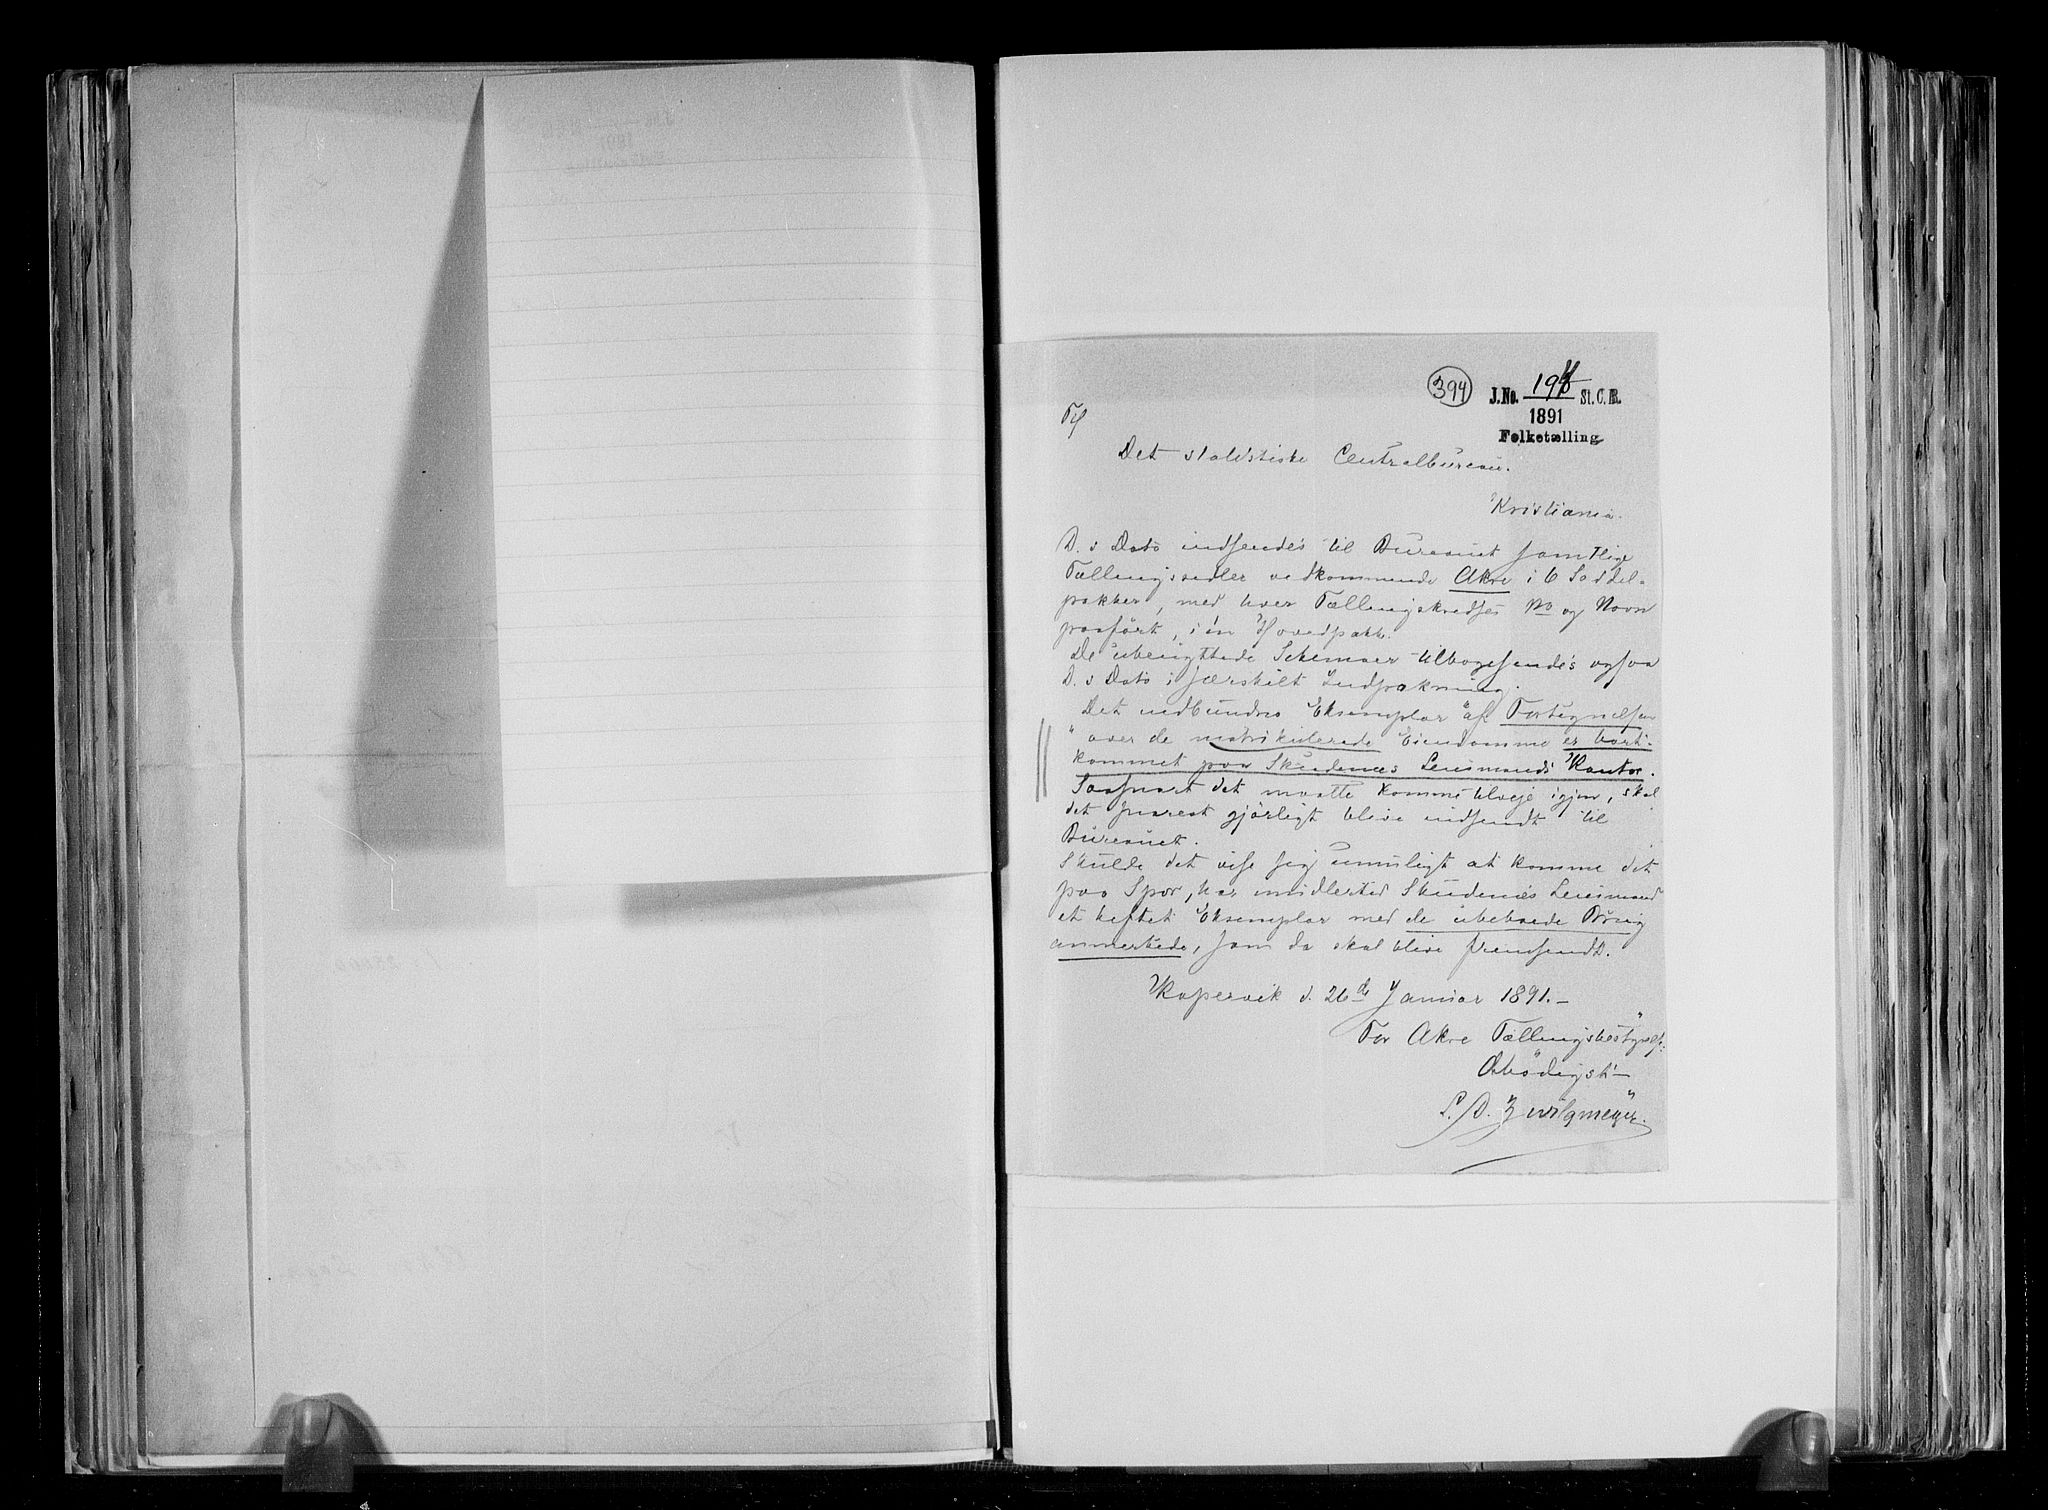 394
J.No. 194 St. C. B.
1891
Folketælling
Til
Det statistiske Centralbureau.
Kristiania.
D. s Dato indsendes til Bureauet samtlige
Tællingssedler vedkommende Akre i 6 Særdel-
pakker, med hver Tællingskredses No og Navn
paaført, i én Hovedpakke.
De ubenyttede Schemaer tilbagesendes ogsaa
D. s Dato i særskilt Indpakning.
Det indbundne Eksemplar af Fortegnelsen
over de matrikulerede Eiendomme er bort-
kommet paa Skudenes Lensmands Kontor.
Saasnart det maatte komme tilveje igjen, skal
det snarest gjørligt blive indsendt til
Bureauet.
Skulde det vise sig umuligt at komme det
paa Spor, har imidlertid Skudenes Lensmand
et heftet Eksemplar med de ubeboede Brug
anmerkede, som da skal blive fremsendt.
Kopervik d. 26de Januar 1891.-
For Akre Tællingsbestyrelse:
Ærbødigst
P. D. Zwilgmeyer.